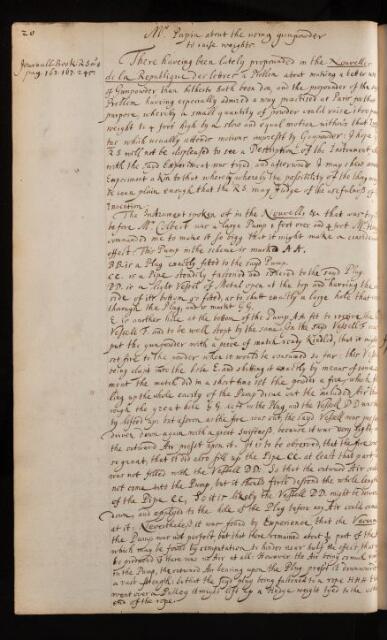 20
Mr. Papin about the using gunpowder
to raise weights
Journall Book R.S. no 4
pag. 162. 167. 245.
There having been lately propounded in the Nouvelles
de la Republique des lettres a Problem about making a better use
of Gunpowder than hitherto hath been don, and the propounder of the sd
Problem having especially admired a way practised at Paris for that
purpose whereby a small quantity of powder could raise
weight to 4 foot high by a slow and equall motion without that
which usually attends motions imprest by Gunpowder: I hope
R S will not be displeased to see a Description of the Instrument
with the said Experiment was tryed and afterward I may shew
Experiment a kin to that whereby the possibility of the thing
be seen plain enough that the R S may judge of the usefulness of
Invention:
The Instrument spoken of in the Nouvelles &c that was tryed
before Mr. Colbert was a large Pump 1 foot over and 4 foot
commanded me to make it so bigg that it might make a considerable
effect. This Pump in the scheme is marked AA.
BB. is a Plug exactly fitted to the said Pump.
CC. is a Pipe steadily fastened and sodered to the said Plug
DD. is a light Vessel of Metal open at the top and having the
side of its bottom so fited, as to shut exactly a large hole that
through the Plug, and is markt GG.
E is another hole at the bottom of the Pump AA fit to receive the
Vessell F. and to be well stopt by the same. In the said Vessell F
put the gunpowder with a piece of match ready kindled, that it might
set fire to the powder when it would be consumed so far: this Vessell
being clapt into the hole E. and shutting it exactly by means of
ment the match did in a short time set the powder a fire, which
ling up the whole cavity of the Pump drive out the included Air
rough the great hole GG. but the Plug and the Vessell DD
by lifted up: but assoon as the fire was out, the said Vessell was
driven down again with a great swiftness, because it was very light
the outward Air prest upon it. It is to be observed, that the fire
vegeant, that it did also fill up the Pipe CC. at least that part
was not filled with the Vessell DD: So that the outward Air could
not come into the Pump, but it should first descend the whole length
of the Pipe CC, So it is likely the Vessell DD. might be
down, and applyed to the hole of the Plug before any Air could come
at it: Nevertheless it was found by Experience that the Vacuum
the Pump was not perfect but that there remained about 1/5 part of the
which may be found by computation to hinder near half the efect that
be produced if there was no Air at all. However the Air being
in the Pump, the outward Air bearing upon the Plug prest it downward
a vast strength: so that the said plug being fastened to a rope HHH
went over a Pulley it might lift up a Hedge weight tyed to the
end of the rope.